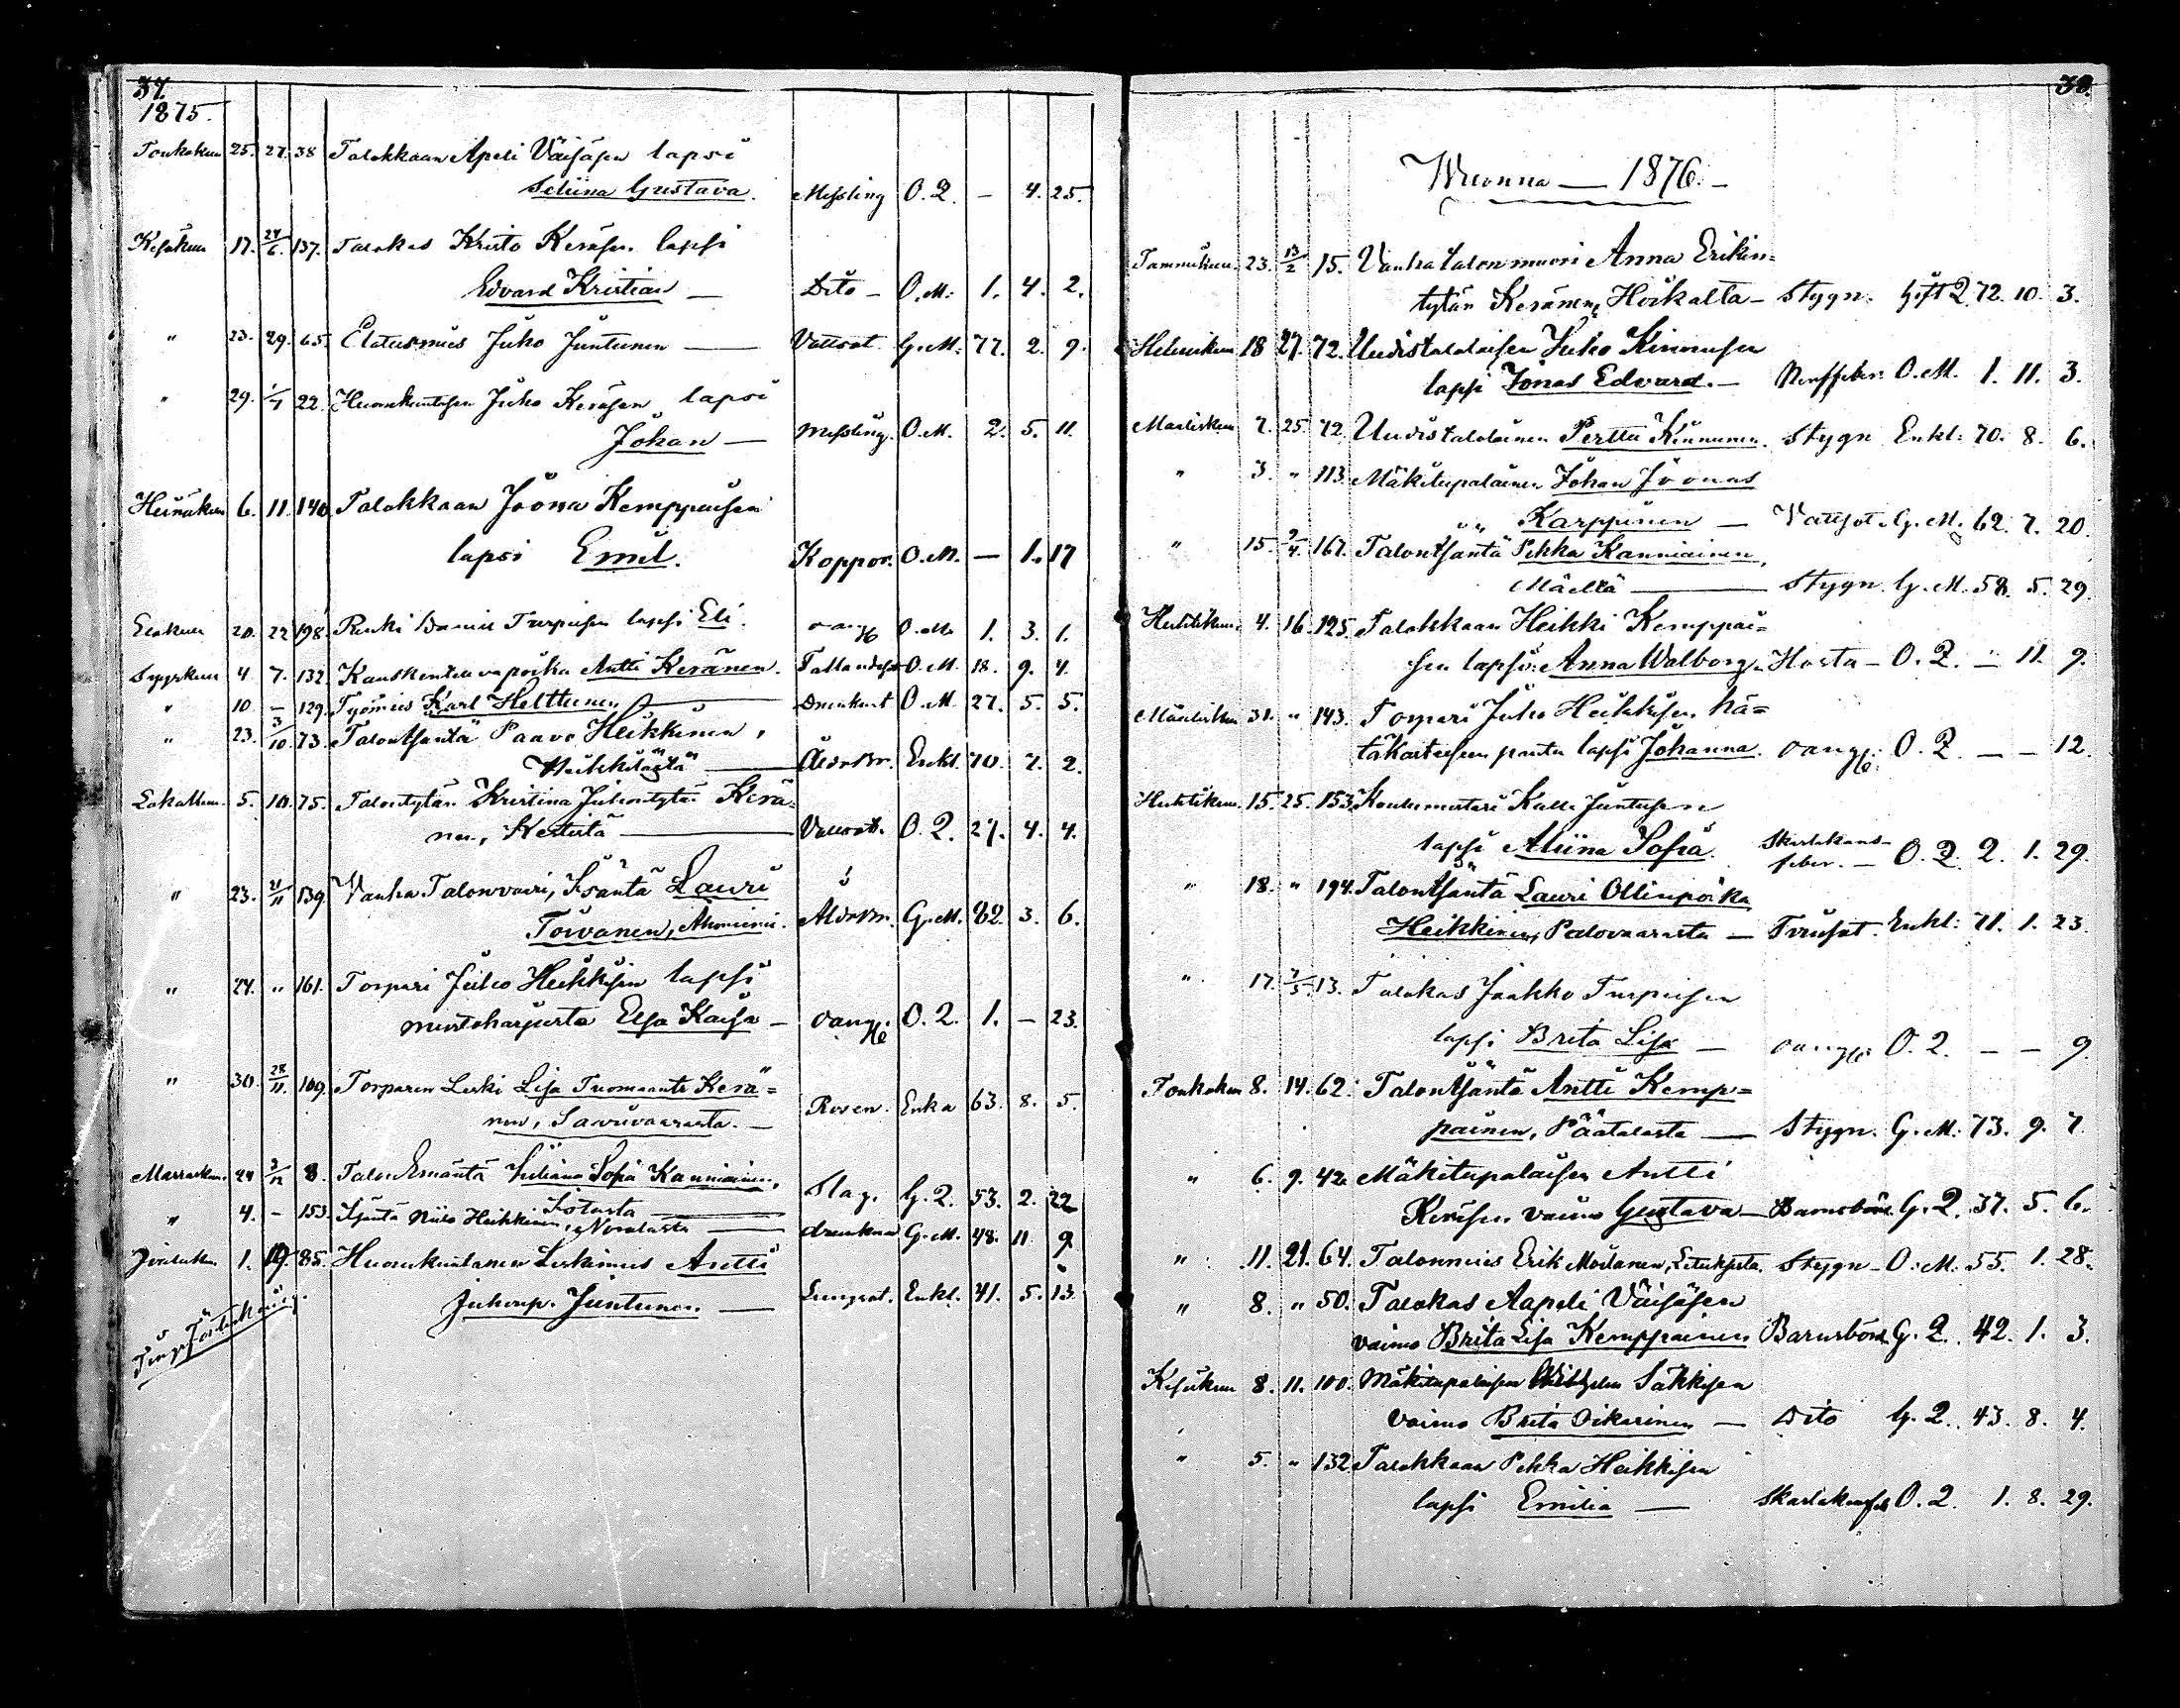 37.
1875.
Toukokuu 25. 27. 38 Talokkaan Apeli Väisäsen lapsi
Seliina Gustava. Messling O. Q. — 4. 25.
Kesäkuu 17. 24/6. 137. Talokas Kristo Keräsen lapsi
Edvard Kristian — Dito — O. M. 1. 4. 2.
" 23. 29. 65. Elatusmies Juho Juntunen — Vattsot G. M. 77. 2. 9.
" 29. 1/7 22. Huonekuntasen Juho Keräsen lapsi
Johan — Messling. O. M. 2. 5. 11.
Heinäkuu 6. 11. 140. Talokkaan Joona Kemppaisen
lapsi Emil. Koppor. O. M. — 1. 17
Elokuu 20. 22 198. Renki Daniel Turpeisen lapsi Eli. O. M. 1. 3. 1.
Syyskuu 4. 7. 132. Antti Keränen. O. M. 18. 9. 4.
" 10. — 129. Työmies Karl Helttunen — Drunknat O. M. 27. 5. 5.
" 23. 3/10. 73. Talonisäntä Paavo Heikkinen,
Heikkilästä — Ålderdr. Enkl. 70. 7. 2.
Lokakuu. 5. 10. 75. Talontytär Kristina Juhontytär Kerä-
nen, — Vattsot. O. Q. 27. 4. 4.
" 23. 21/11 139. Vanha Talonvaari, Isäntä Lauri
Toivanen, Ålderdr. G. M. 82. 3. 6.
" 24. " 161. Torpari Juho Heikkisen lapsi
Elsa Kaisa — oangif. O. Q. 1. — 23.
" 30. 28/11. 109. Torparin Leski Lisa Tuomaant. Kerä=
nen, Saviivaarasta. — Rosen. Enka 63. 8. 5.
Marraskuu. 24 3/12 8. Talon Emäntä Juliana Sofia Kanniainen,
— Slag. G. Q. 53. 2. 22
" 4. — 153. Isäntä Niilo Heikkinen, — drunknar G. M. 48. 11. 9.
Jouluukuu. 1. 19. 85. Huonekuntanen Leskimies Antti
Juhonp. Juntunen — Lungsot. Enkl. 41. 5. 13.
38.
Wuonna — 1876. —
Tammikuu. 23. 13/2 15. Vanha talon muori Anna Erikin=
tytär Keränen, Hoikalta — Stygn. Gift Q 72. 10. 3.
Helmikuu 18 27. 72. Uudistalolaisen Juho Kinnusen
lapsi Jonas Edvard. — Nerffeber. O. M. 1. 11. 3.
Maaliskuu 7. 25. 72. Uudistalolainen Perttu Kinnunen. Stygn Enkl: 70. 8. 6.
" 3. " 113. Mäkitupalainen Johan Joonas
" " Karppinen — Vattsot. G. M. 62. 7. 20.
" 15. 9/4. 167. Talonisäntä Pekka Kanniainen,
Mäeltä — Stygn. G. M. 58. 5. 29.
Huhtikuu. 4. 16. 125. Talokkaan Heikki Kemppai=
sen lapsi: Anna Walborg. Hosta — O. Q. — 11. 9.
Maaliskuu 31. " 143. Torpari Juho Heikkisen hä=
täkasteesen pantu lapsi Johanna. oangif. O. Q. — — 12.
Huhtikuu. 15. 25. 153. Koulumestari Kalle Juntusen
lapsi Aliina Sofia. Skarlakans-
feber. — O. Q. 2. 1. 29.
" 18. " 194. Talonisäntä Lauri Ollinpoika
Heikkinen, Palovaarasta — Tvinsot. Enkl: 71. 1. 23.
" 17. 7/5. 13. Talokas Jaakko Turpeisen
lapsi Brita Lisa — oangif O. Q. — — 9.
Toukokuu 8. 14. 62. Talonisäntä Antti Kemp=
painen, Päätalosta — Stygn. G. M. 73. 9. 7.
" 6. 9. 42. Mäkitupalaisen Antti
Keräsen vaimo Gustava — Barnsbörd G. Q. 37. 5. 6.
" 11. 21. 64. Talonmies Erik Moilanen, Stygn — O. M. 55. 1. 28.
" 8. " 50. Talokas Aapeli Väisäsen
vaimo Brita Lisa Kemppainen Barnsbörd. G. Q. 42. 1. 3.
Kesäkuu 8. 11. 100. Mäkitupalaisen Wilhelm Säkkisen
Vaimo Brita Oikarinen — Dito G. Q. 43. 8. 4.
" 5. " 132 Talokkaan Pekka Heikkisen
lapsi Emilia — Skarlakansfeb O. Q. 1. 8. 29.